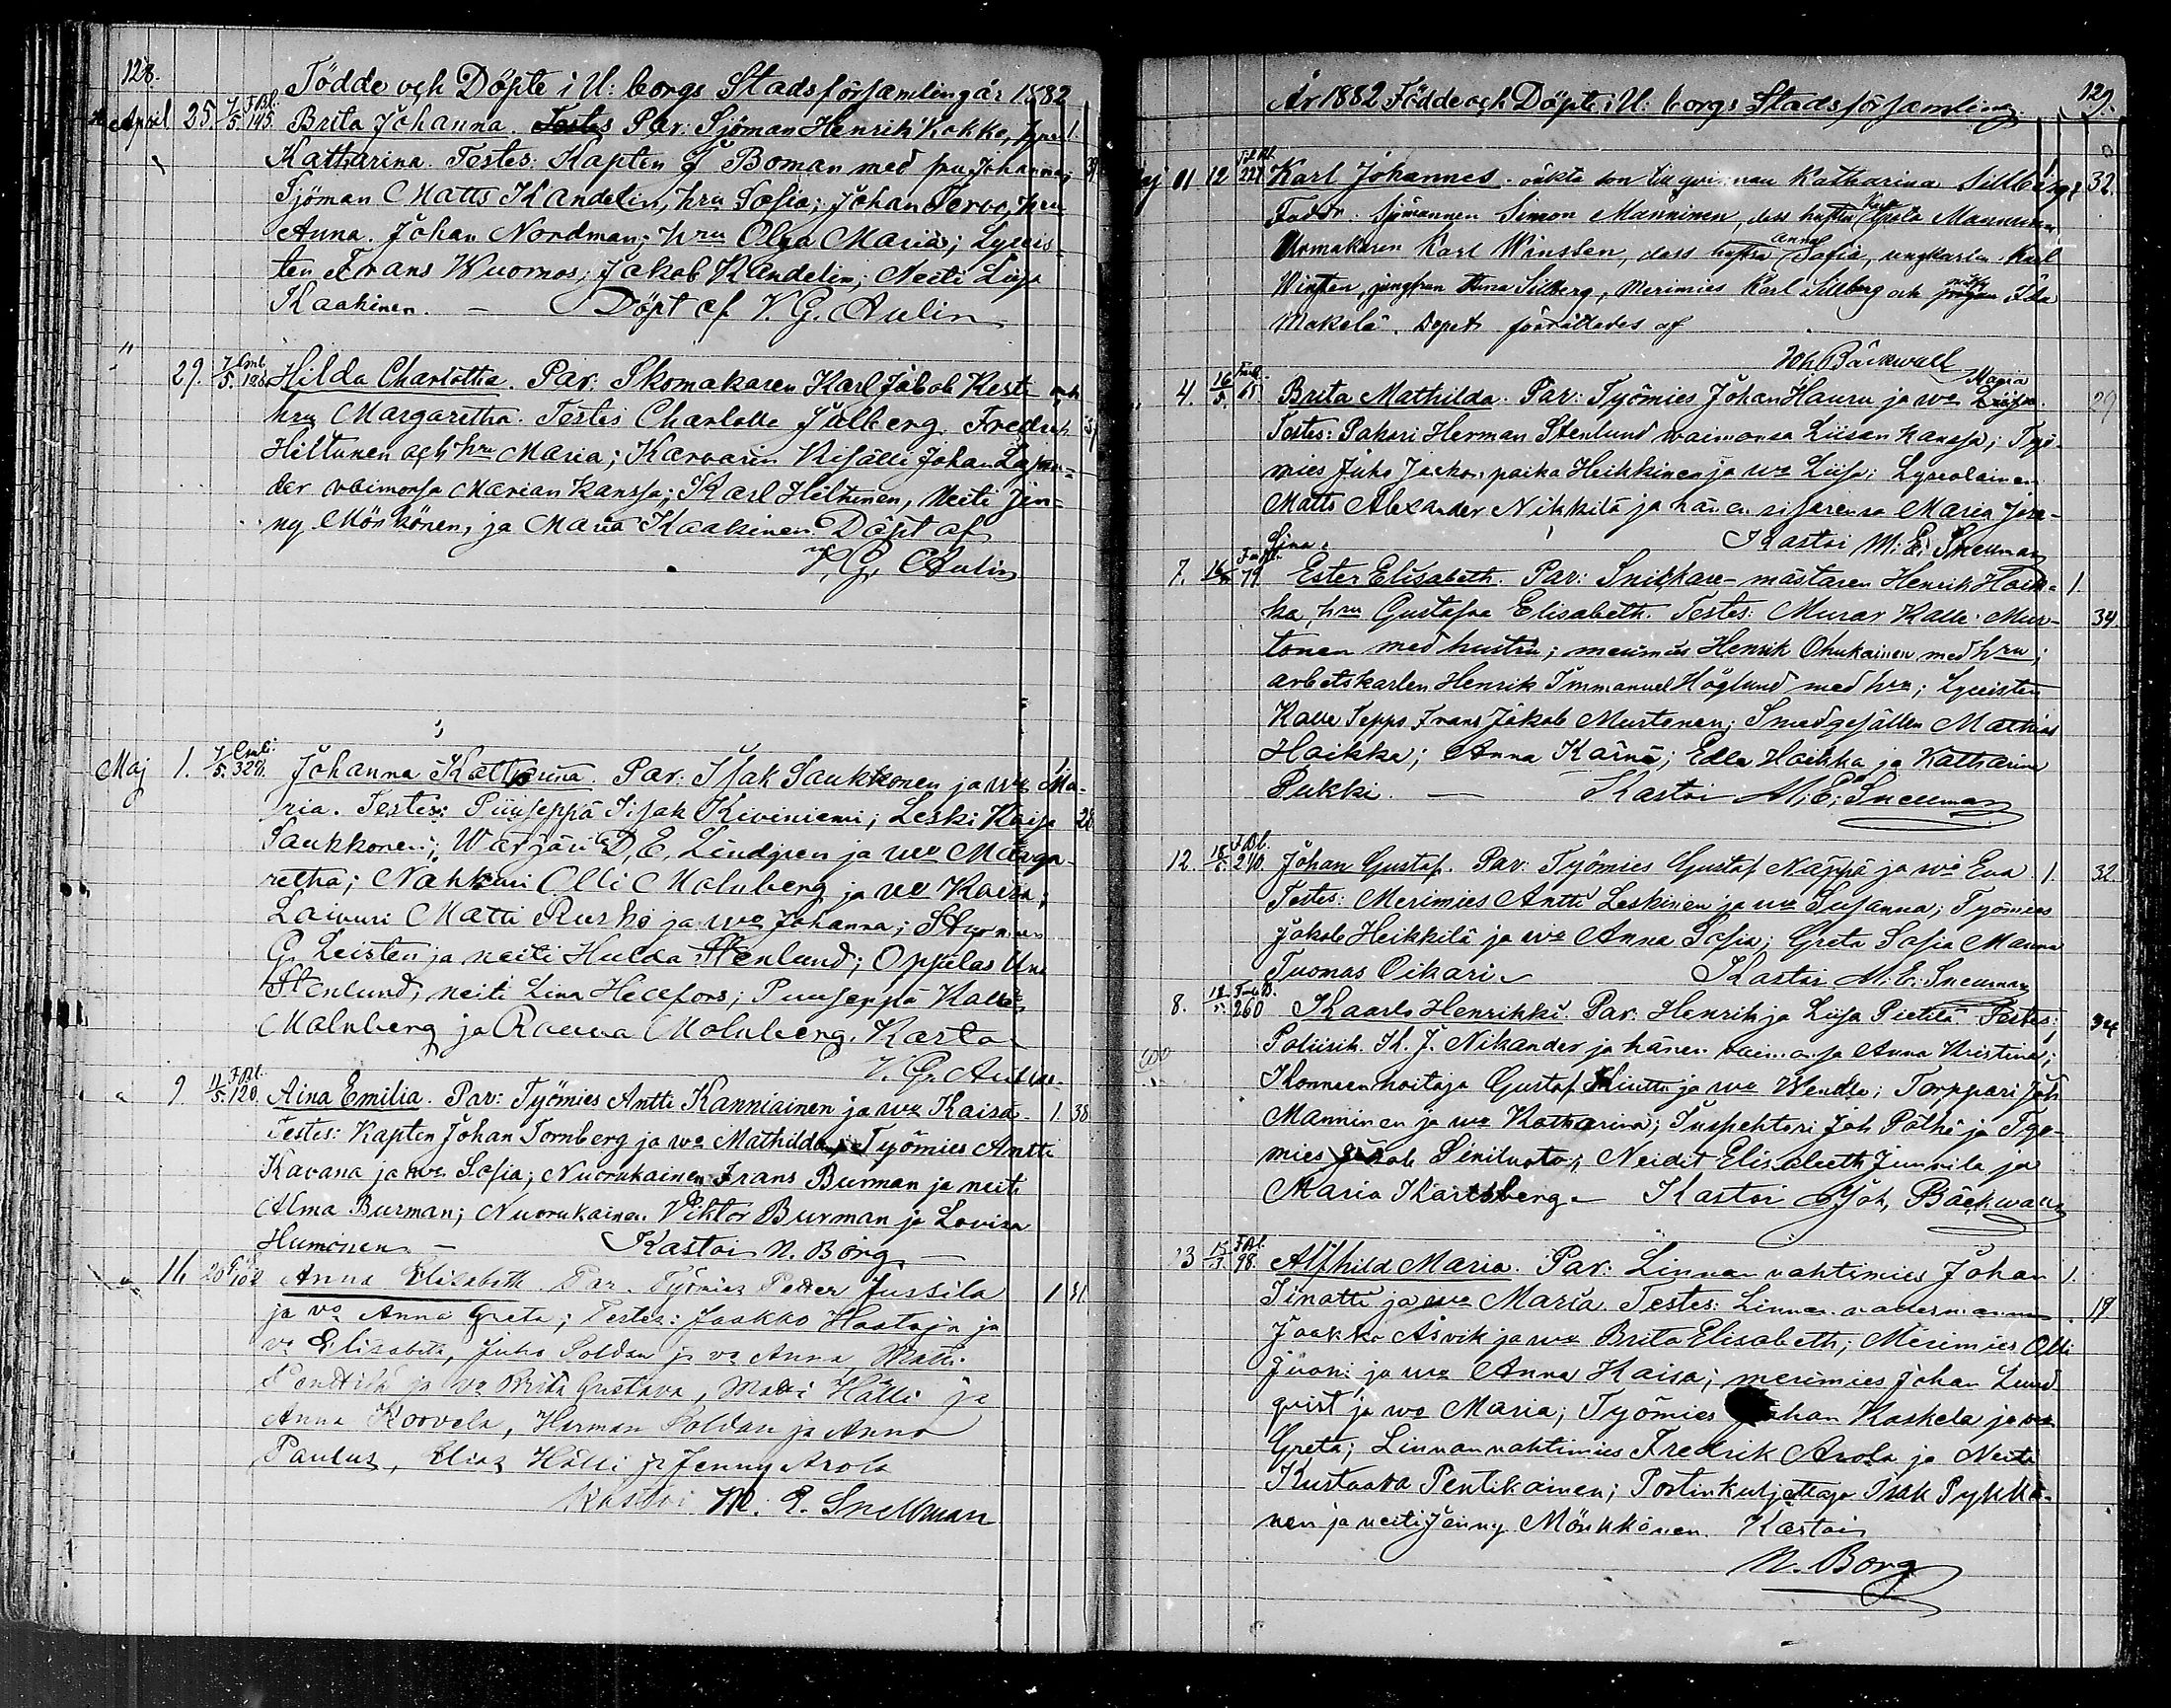 128.
Födde och Döpte i U:borgs Stadsförsamling år 1882
April 25. 7/5 FBl. 145 Brita Johanna. Testes Par: Sjöman Henrik Kokko, 1.
Katharina. Testes: Kapten J Boman med fru Johanna;
Sjöman Matts Kandelin, hru Sofia; Johan Tervo, hru
Anna. Johan Nordman; hru Olga Maria; Lyceis-
ten Frans Wuornos; Jakob Kandelin; Neiti Liisa
Kaakinen. — Döpt af V. G. Aulin
" 29. 7/5. 128 Hilda Charlotta. Par: Skomakaren Karl Jakob Kesti och
hru Margaretha. Testes Charlotte Jalberg. Fredrik
Hiltunen och hru Maria; Karvarin Kisälli Johan
der vaimonsa Marian kanssa; Karl Hiltunen, Neiti Jen-
ny Mönkönen, ja Maria Kaakinen. Döpt af
V. G. Aulin
Maj 1. 7/5. 327. Johanna Katharina. Par: Isak Saukkonen ja wo Ma-
ria. Testes: Puuseppä Iisak Kiviniemi; Leski Kaisa 28
Saukkonen; Wärjäri D. E. Lindgren ja wo Marga-
retha; Nahkuri Olli Malmberg ja wo Kaisa;
Laivuri Matti Rusko ja wo Johanna;
G. Leisten ja neiti Hulda Stenlund; Oppilas
Stenlund, neiti Lina Hellfors; Puuseppä Kalle
Malmberg ja Malmberg. Kastoi
V. G. Aulin.
" 9. 11/5. FBl. 120. Aina Emilia. Par: Työmies Antti Kanniainen ja wo Kaisa. 1 38
Testes: Kapten Johan Tornberg ja wo Mathilda; Työmies Antti
Kavana ja wo Sofia; Nuorukainen Frans Burman ja neiti
Alma Burman; Nuorukainen Viktor Burman ja Lovisa
Humonen. — Kastoi N. Borg —
" 11. 20 102 Anna Elisabeth. Par. Työmies Petter Jussila 1
ja vo Anna Greta; Testes: Jaakko Haataja ja
vo Elisabeth, Juho Soldan ja vo Anna, Matti
Penttilä ja vo Brita Gustava, Matti Hälli ja
Anna Koovela, Herman Soldan ja Anna
Paulus, Elias Hälli ja Jenny Arola
Kastoi M. E. Snellman
År 1882 Födde och Döpte i U:borgs Stadsförsamling 129.
12 227 Karl Johannes. oäkta son till qvinnan Katharina Sillberg 32.
Faddr. Sjömannen Simon Manninen, dess hustru Manninen
Urmakaren Karl Winsten, dess hustru Anna Sofia, ungkarlen Karl
Winsten, jungfrun Anna Sillberg, Merimies Karl Sillberg och Ida
Makelä. Dopet förrättades af
Joh Bäckwall
4. 16/5. 65 Brita Mathilda. Par: Työmies Johan Hauru ja wo Maria Liisa. 29
Testes: Pakari Herman Stenlund waimonsa Liisan kanssa; Työ-
mies Juho Heikkinen ja wo Liisa; Lyseolainen
Matts Alexander Nikkilä ja hänen sisarensa Maria Jose-
fina. Kastoi M. E. Snellman
7. 16/5 79 Ester Elisabeth. Par: Snickare-mästaren Henrik Haik- 1.
ka, hru Gustafva Elisabeth. Testes: Murar Kalle Mur- 34.
tonen med hustru; merimies Henrik Ohukainen med hru;
arbetskarlen Henrik Immanuel Höglund med hru; Lyceisten
Kalle Seppo, Frans Jakob Murtonen; Smedgesällen Mathias
Haikka; Anna Kärnä; Edla Haikka ja Katharina
Pukki. — Kastoi M. E. Snellman
12. 18/5. FBl. 240. Johan Gustaf. Par: Työmies Gustaf Näppä ja wo Eva. 1. 32
Testes: Merimies Antti Leskinen ja wo Susanna; Työmies
Jakob Heikkilä ja wo Anna Sofia; Greta Sofia Manna
Tuomas Oikari. Kastoi M. E. Snellman
8. 18/5. 260 Kaarlo Henrikki. Par. Henrik ja Liisa Pietilä Testes; 34
Poliisik. K. J. Nikander ja hänen vaimonsa Anna Kristina;
Konneenhoitaja Gustaf ja wo Wendla; Torppari Joh
Manninen ja wo Katharina; Inspehtori Joh Päthi ja Työ-
mies Jakob Siniluoto; Neidit Elisabeth Junnila ja
Maria Karlsberg. — Kastoi Joh. Bäckwall
13 FBl. 98. Alfhild Maria. Par: Linnan vahtimies Johan 1.
Tinatti ja wo Maria. Testes: Linnan 19
Jaakko Åsvik ja wo Brita Elisabeth; Merimies Olli
Juoni ja wo Anna Kaisa; merimies Johan Lund
qvist ja wo Maria; Työmies Johan Koskela ja wo
Greta; Linnanvahtimies Fredrik Arola ja Neiti
Kustaava Pentikainen; Postinkuljettaja Isak Pykkö-
nen ja neiti Jenny Mönkkönen. Kastoi
N. Borg